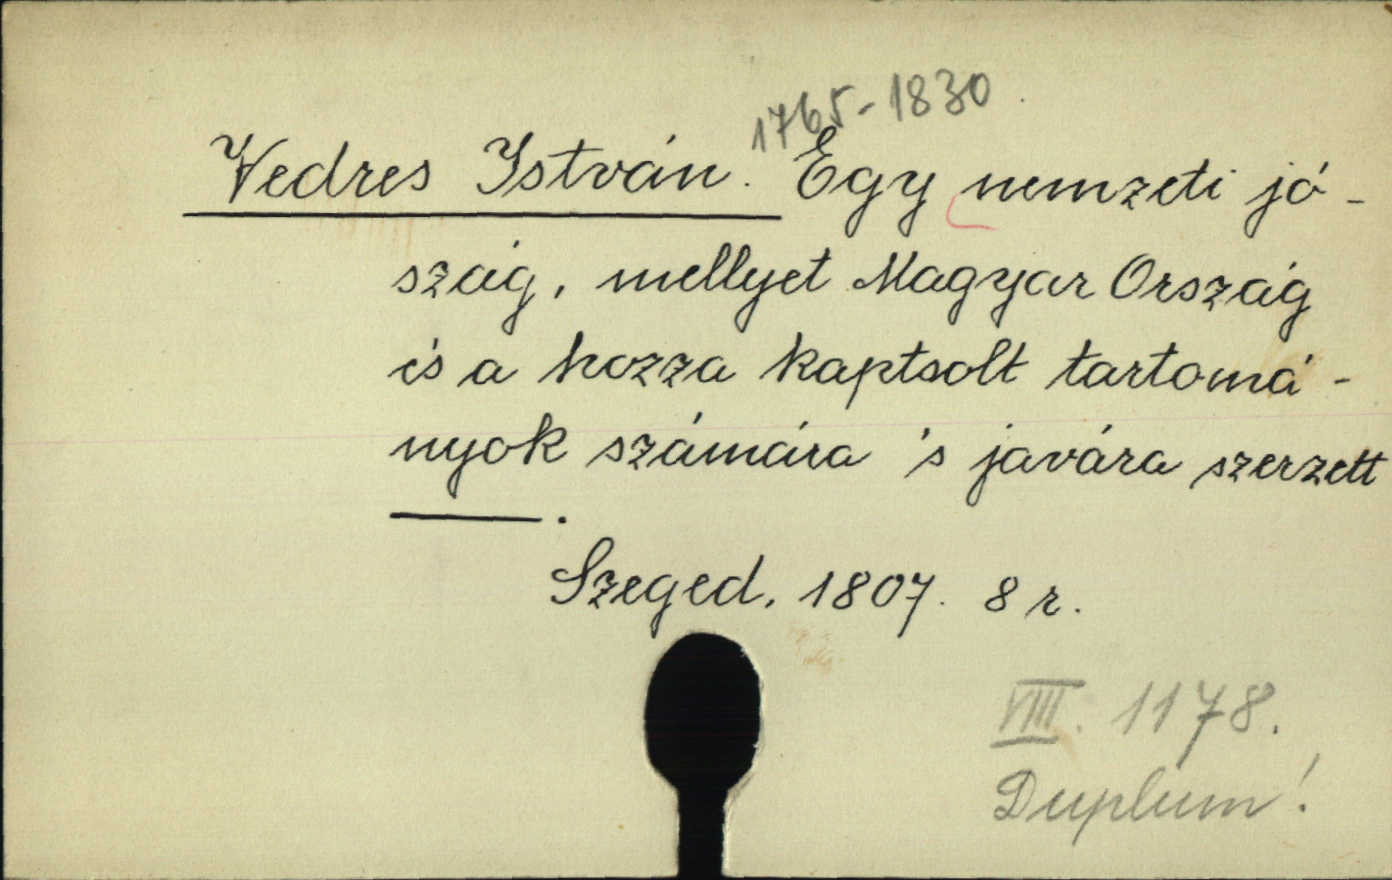 1765-1830
Vedres István. Egy nemzeti jó-
szág, mellyet Magyar Ország
és a hozza kaptsolt tartomá-
nyok számára 's javára szerzett
———.
Szeged, 1807. 8 r.
VIII. 1178.
Duplum!